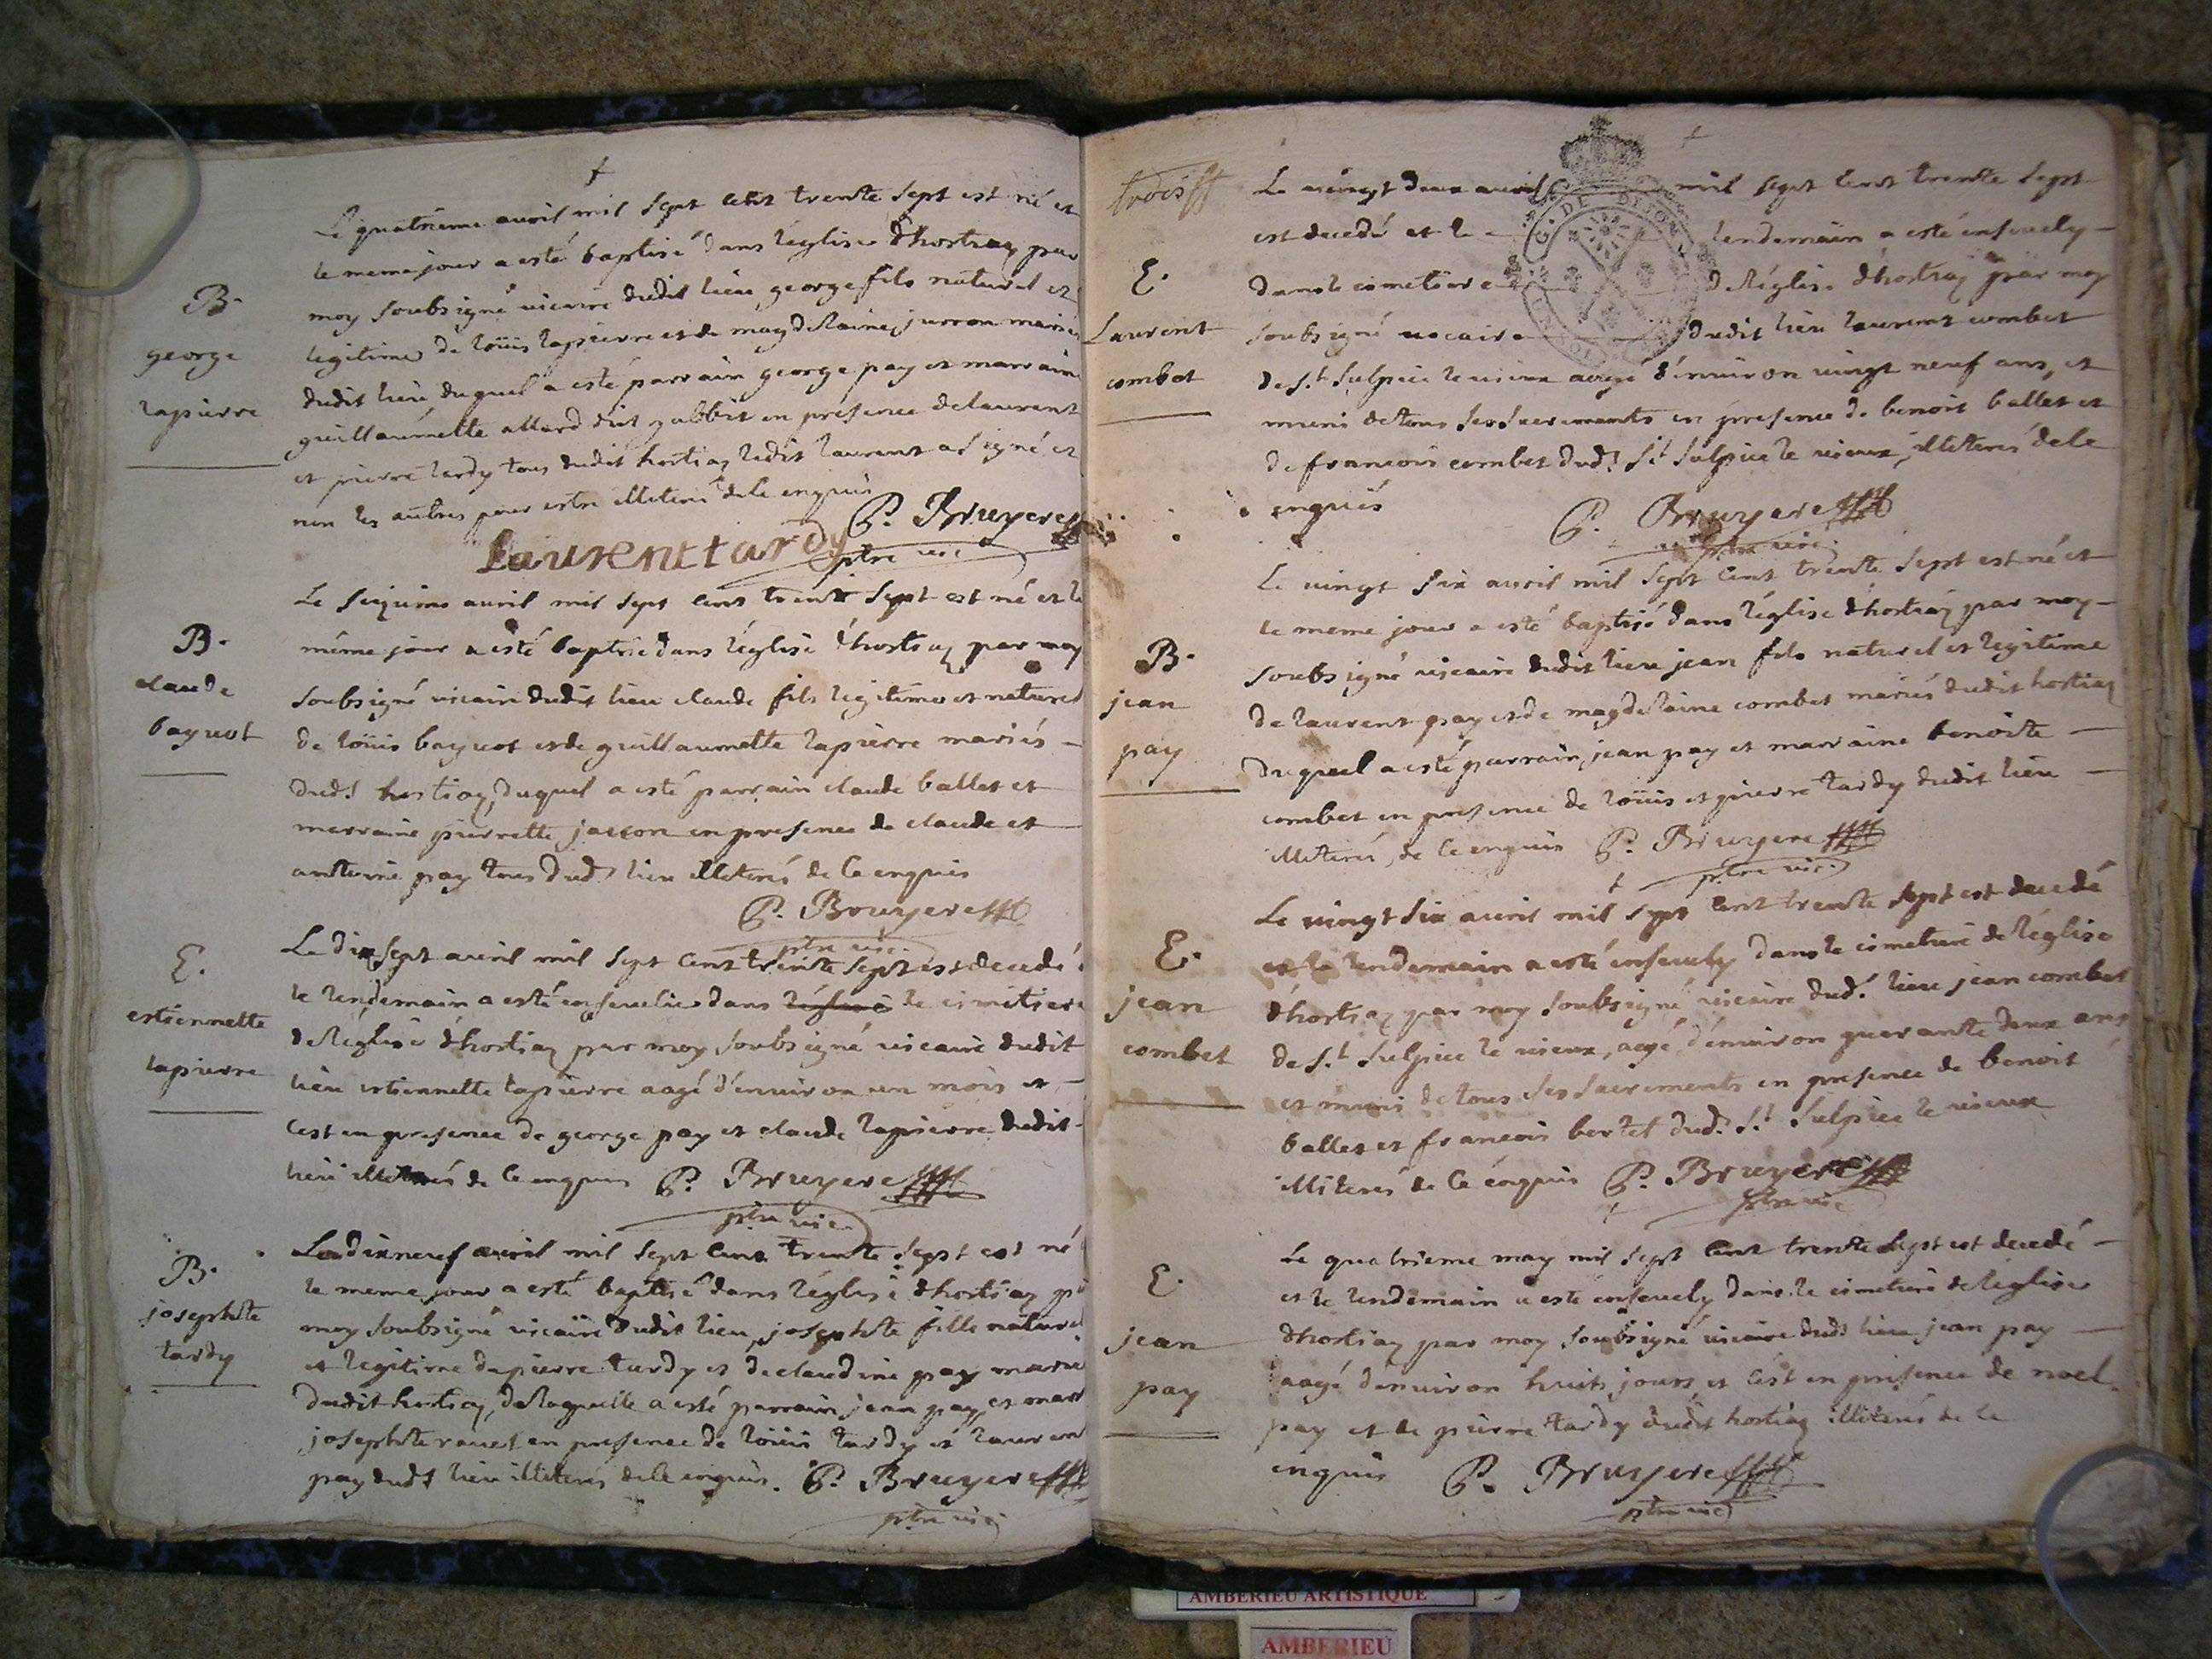 B.
george
lapierre
Le quatrieme avril mil sept cent trente sept est né et
le meme jour a esté baptisé dans l'eglise d'hostiaz par
moy soubsigné vicaire dudit lieu george fils naturel et
legitime de loüis lapierre et de magdelaine juron mariés
dudit lieu, duquel a esté parrain george pay et marraine
guillaumette allard dit en presence de laurent
et pierre tardy tous dudit hostiaz ledit laurent a signé et
non les autres pour estre illiterés de ce enquis
P. Bruyere
ptre vic.
Laurent tardy
B.
claude
bayuot
Le seizieme avril mil sept cent trente sept est né et le
même jour a esté baptisé dans l'eglise d'hostiaz par moy
soubsigné vicaire dudit lieu claude fils legitime et naturel
de loüis bayuot et de guillaumette lapierre mariés
dud.t hostiaz, duquel a esté parrain claude ballet et
marraine pierrette jacson en presence de claude et
antoine pay tous dud.t lieu illiterés de ce enquis
P. Bruyere
ptre vic.
E.
estiennette
lapierre
Le dixsept avril mil sept cent trente sept est decedé
le lendemain a esté ensevelie dans le cimetiere
de l'eglise d'hostiaz par moy soubsigné vicaire dudit
lieu estiennette lapierre aagé d'environ un mois et
c'est en presence de george pay et claude lapierre dudit
lieu illiterés de ce enquis P. Bruyere
ptre vic.
B.
josephte
tardy
Le dixneuf avril mil sept cent trente sept est né
le meme jour a esté baptisé dans l'eglise d'hostiaz
moy soubsigné vicaire dudit lieu, josephte fille naturel
et legitime de pierre tardy et de claudine pay marié
dudit hostiaz, de laquelle a esté parrain jean pay et marr
josephte ravet en presence de loüis tardy et lauren
pay dud.t lieu illiterés de ce enquis. P. Bruyere
ptre vic.
trois
E.
Laurent
combet
Le vingt deux avril mil sept cent trente sept
est decedé et le lendemain a esté ensevely
dans le cimetiere de l'eglise d'hostiaz par moy
soubsigné vicaire dudit lieu laurent combet
de S.t Sulpice le vieux aagé d'environ vingt neuf ans, et
muni de tous ses sacrements en presence de benoit ballet et
de francois combet dud.t S.t Sulpice le vieux, illiterés de ce
enquis
P. Bruyere
ptre vic.
G. DE DIJON
B.
jean
pay
Le vingt six avril mil sept cent trente sept est né et
le meme jour a esté baptisé dans l'eglise d'hostiaz par moy
soubsigné vicaire dudit lieu jean fils naturel et legitime
de laurent pay et de magdelaine combet mariés dudit hostiaz
duquel a esté parrain jean pay et marraine benoite
combet en presence de loüis et pierre tardy dudit lieu
illiterés, de ce enquis P. Bruyere
ptre vic.
E.
jean
combet
Le vingt six avril mil sept cent trente sept est decedé
et le lendemain a esté ensevely dans le cimetiere de l'eglise
d'hostiaz par moy soubsigné vicaire dud.t lieu jean combet
de S.t Sulpice le vieux, aagé d'environ quarante deux ans
et muni de tous ses sacrements en presence de benoit
ballet et francois bertet dud.t S.t Sulpice le vieux
illiterés de ce enquis P. Bruyere
ptre vic.
E.
jean
pay
Le quatrieme may mil sept cent trente sept est decedé
et le lendemain a esté ensevely dans le cimetiere de l'eglise
d'hostiaz par moy soubsigné vicaire dud.t lieu jean pay
aagé d'environ huit jours et c'est en presence de noel
pay et de pierre tardy dudit hostiaz illiterés de ce
enquis P. Bruyere
ptre vic.
AMBERIEU ARTISTIQUE
AMBERIEU